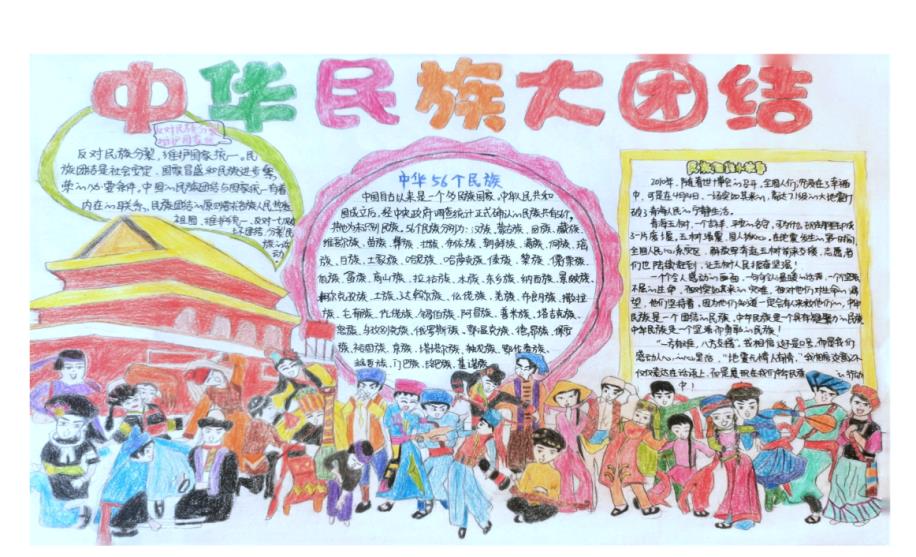 中华民族大团结
反对民族分裂
维护国家统一
反对民族分裂，维护国家统一。民
族团结是社会安定、国家昌盛和民族进步繁
荣的必要条件，中国的民族团结与国家统一有着
内在的联系。
祖国，维护统一，反对一切破
坏团结，分裂民
族的活
动
中华56个民族
中国自古以来是一个多民族国家，中华人民共和
国成立后，经中央政府调查统计正式确认的民族共有56个，
56个民族分别为：汉族、蒙古族、回族、藏族、
维吾尔族、苗族、彝族、壮族、布依族、朝鲜族、满族、侗族、瑶
族、白族、土家族、哈尼族、哈萨克族、傣族、黎族、傈僳族、
佤族、畲族、高山族、拉祜族、水族、东乡族、纳西族、景颇族、
柯尔克孜族、土族、达斡尔族、仫佬族、羌族、布朗族、撒拉
族、毛南族、仡佬族、锡伯族、阿昌族、普米族、塔吉克族、
怒族、乌孜别克族、俄罗斯族、鄂温克族、德昂族、保安
族、裕固族、京族、塔塔尔族、独龙族、鄂伦春族、
赫哲族、门巴族、珞巴族、基诺族
民族团结小故事
2010年，随着世博会的召开，全国人们沉浸在幸福
中，可是在4月14日，一场突如其来的，高达7.1级的大地震打
破了青海人民的宁静生活。
全国人民
一个个令人感动的画面，一句句温暖的话语，一个个坚强
不屈的生命，面对突如其来的灾难，面对他们对生命的渴
望，他们坚持着，因为他们知道一定会有人来救他们的，中华
民族是一个团结的民族，中华民族是一个具有凝聚力的民族
中华民族是一个坚强而勇敢的民族！
“一方有难，八方支援”，我相信这不是口号，而是我们
感动人心的心里话，“地震无情人有情”，我相信这句话不
仅仅表达在话语上，而是展现在我们中华民族的行动
中！